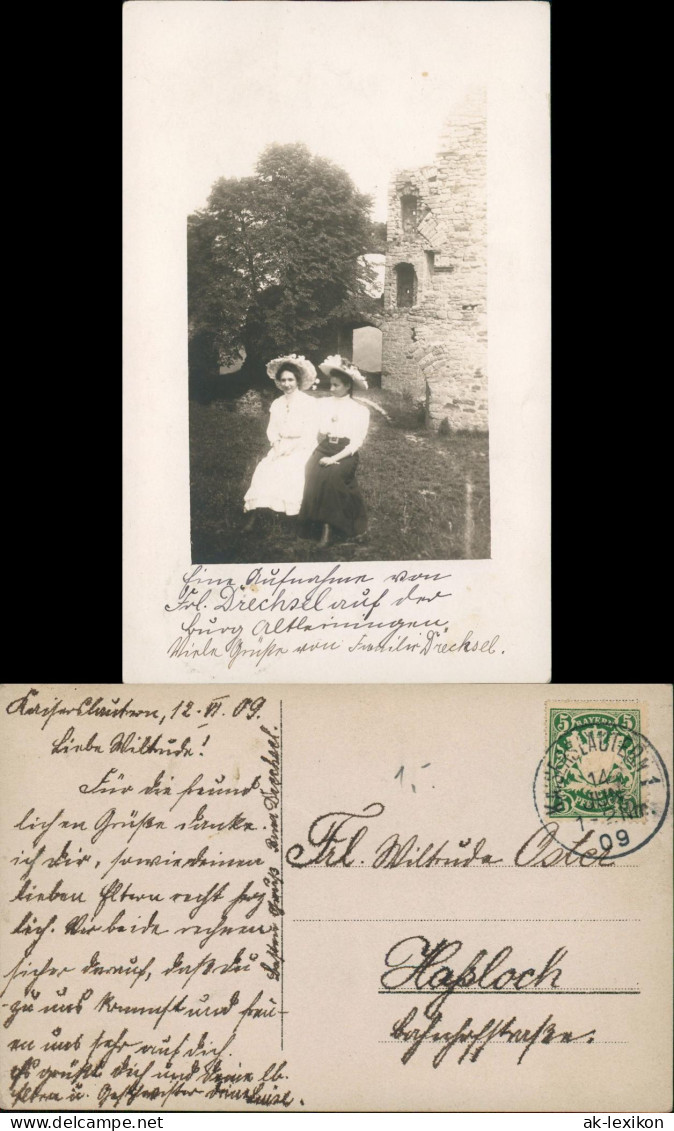 Eine Aufnahme von
Frl. Drechsel auf der
Burg Altleiningen.
Viele Grüße von Familie Drechsel.
Kaiserslautern, 12. VI. 09.
Liebe Wiltrude!
Für die freund
lichen Grüße danke
ich dir, sowie deinen
lieben Eltern recht herz
lich. Wir beide rechnen
sicher darauf, daß du
zu uns kommst und freu-
en uns sehr auf dich.
Es grüßt dich und deine lb.
Eltern u. Geschwister deine
Luise.
Besten Gruß Drechsel.
15.
5 BAYERN 5
KAISERSLAUTERN 1
14
JUN
09
Frl. Wiltrude Oster
Haßloch
Bahnhofstraße.
delcampe.net
ak-lexikon